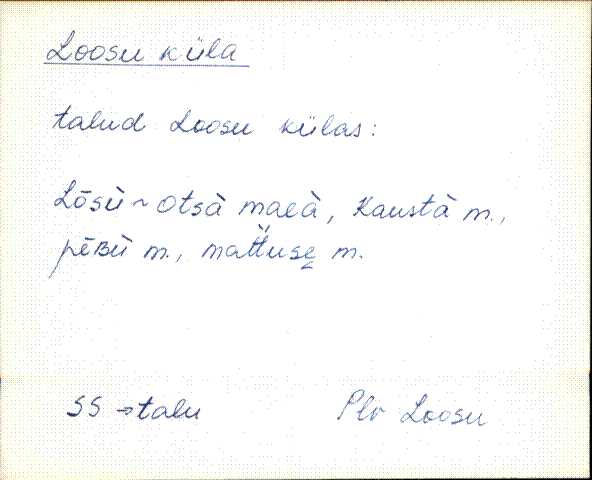 Loosu küla
talud Loosu külas:
Lōsù ~ otsà maeà, Kaustà m.,
pēʙù m., mattuse̬ m.
SS → talu Plv Loosu